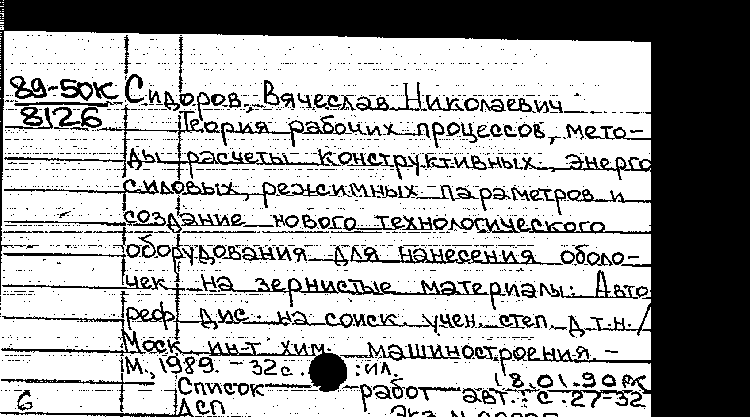 89-50к Сидоров, Вячеслав Николаевич
8126
Теория рабочих процессов, мето-
ды расчеты конструктивных, энерго
силовых, режимных параметров и
создание нового технологического
оборудования для нанесения оболо-
чек на зернистые материалы: Авто
реф. дис. на соиск. учен. степ. д.т.н./
Моск. ин-т хим. машиностроения. -
М., 1989. - 32 с. : ил.
18.01.90
Список работ авт.: с. 27-32
6 ДСП